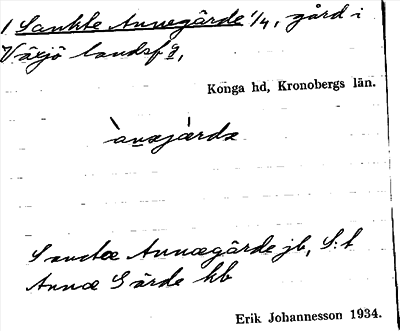 1 Sankte Annegärde 1/4, gård i
Växjö landsf g,
Konga hd, Kronobergs län.
ànnəjárdə
Sanctæ Annægärde jb, S:t
Annæ Gärde kb
Erik Johannesson 1934.